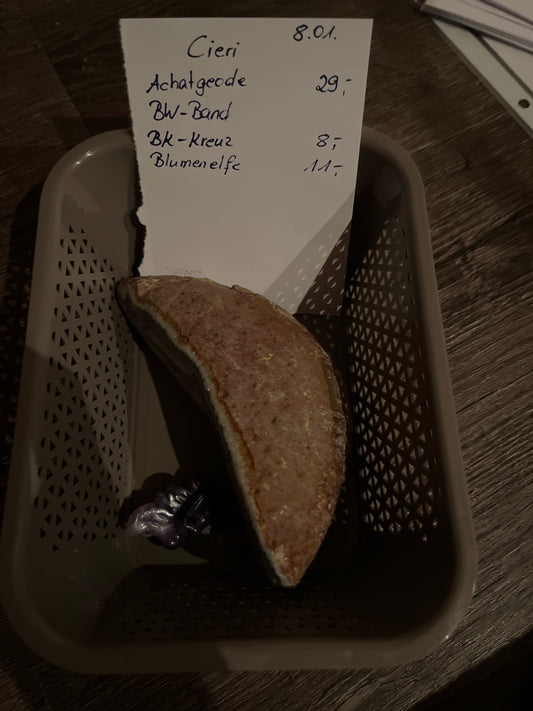 8.01.
Cieri
Achatgeode 29,-
BW-Band
BK-Kreuz 8,-
Blumenelfe 11,-